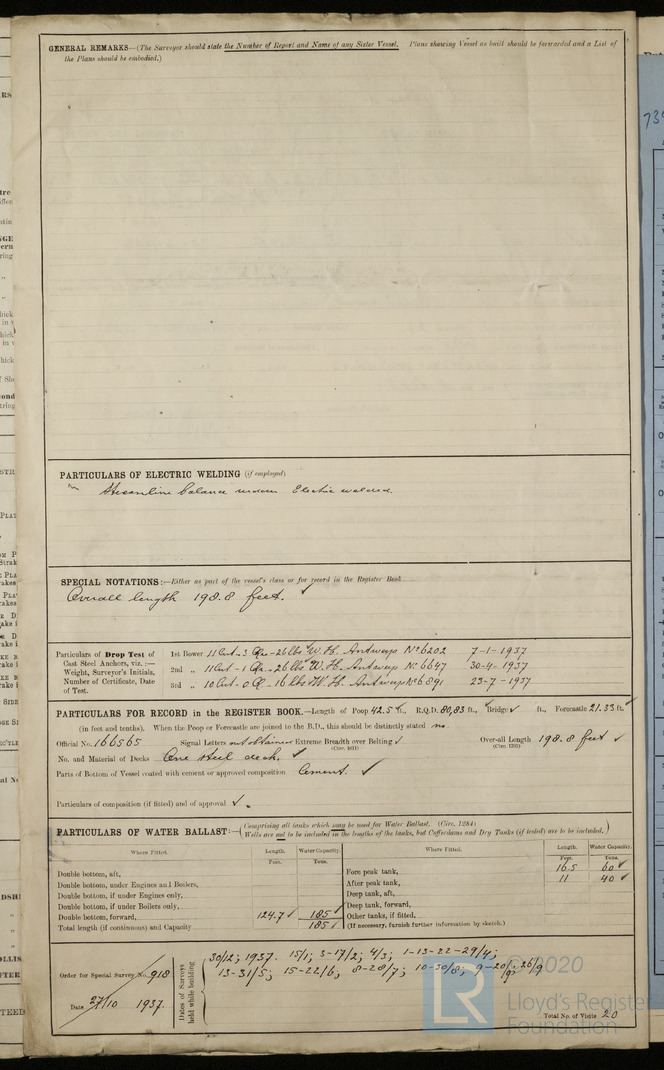 GENERAL REMARKS—(The Surveyor should state the Number of Report and Name of any Sister Vessel. Plans showing Vessel as built should be forwarded and a List of
the Plans should be embodied.)
PARTICULARS OF ELECTRIC WELDING (if employed)
Streamline balance rudder Electric welded.
SPECIAL NOTATIONS:—Either as part of the vessel's class or for record in the Register Book
Overall length 198.8 feet. ✓
Particulars of Drop Test of 1st Bower 11 Cwt - 3 Qr - 26 lbs W. H. Antwerp No 6202 7-1-1937
Cast Steel Anchors, viz.:—
Weight, Surveyor's Initials, 2nd „ 11 Cwt - 1 Qr - 26 lbs W. H. Antwerp No 6647 30-4-1937
Number of Certificate, Date 3rd „ 10 Cwt - 0 Q - 16 lbs W. H. Antwerp No 6891 23-7-1937
of Test.
PARTICULARS FOR RECORD in the REGISTER BOOK.—Length of Poop 42.5 ft., R.Q.D. 80,83 ft., Bridge ✓ ft., Forecastle 21.33 ft. ✓
(in feet and tenths). When the Poop or Forecastle are joined to the B.D., this should be distinctly stated no.
Official No. 166565 Signal Letters not obtained Extreme Breadth over Belting ✓ Over-all Length 198.8 feet ✓
(Circ. 1611) (Circ. 1391)
No. and Material of Decks One steel deck. ✓
Parts of Bottom of Vessel coated with cement or approved composition Cement. ✓
Particulars of composition (if fitted) and of approval ✓.
PARTICULARS OF WATER BALLAST:—(Comprising all tanks which may be used for Water Ballast. (Circ. 1284)
Wells are not to be included in the lengths of the tanks, but Cofferdams and Dry Tanks (if tested) are to be included.)
Where Fitted. Length. Water Capacity. Where Fitted. Length. Water Capacity.
Feet. Tons. Feet. Tons.
Double bottom, aft, Fore peak tank, 16.5 60 ✓
Double bottom, under Engines and Boilers, After peak tank, 11 40 ✓
Double bottom, if under Engines only, Deep tank, aft,
Double bottom, if under Boilers only, Deep tank, forward,
Double bottom, forward, 124.7 ✓ 185 ✓ Other tanks, if fitted,
Total length (if continuous) and Capacity 185 ✓ (If necessary, furnish further information by sketch.)
Order for Special Survey No. 918
Date 27/10 1937.
Dates of Surveys held while building
30/12; 1937. 15/1; 3-17/2; 4/3; 1-13-22-29/4;
13-31/5; 15-22/6; 8-28/7; 10-30/8; 9-20/9; 26/9
Total No. of Visits 20
© 2020
LR
Lloyd's Register
Foundation